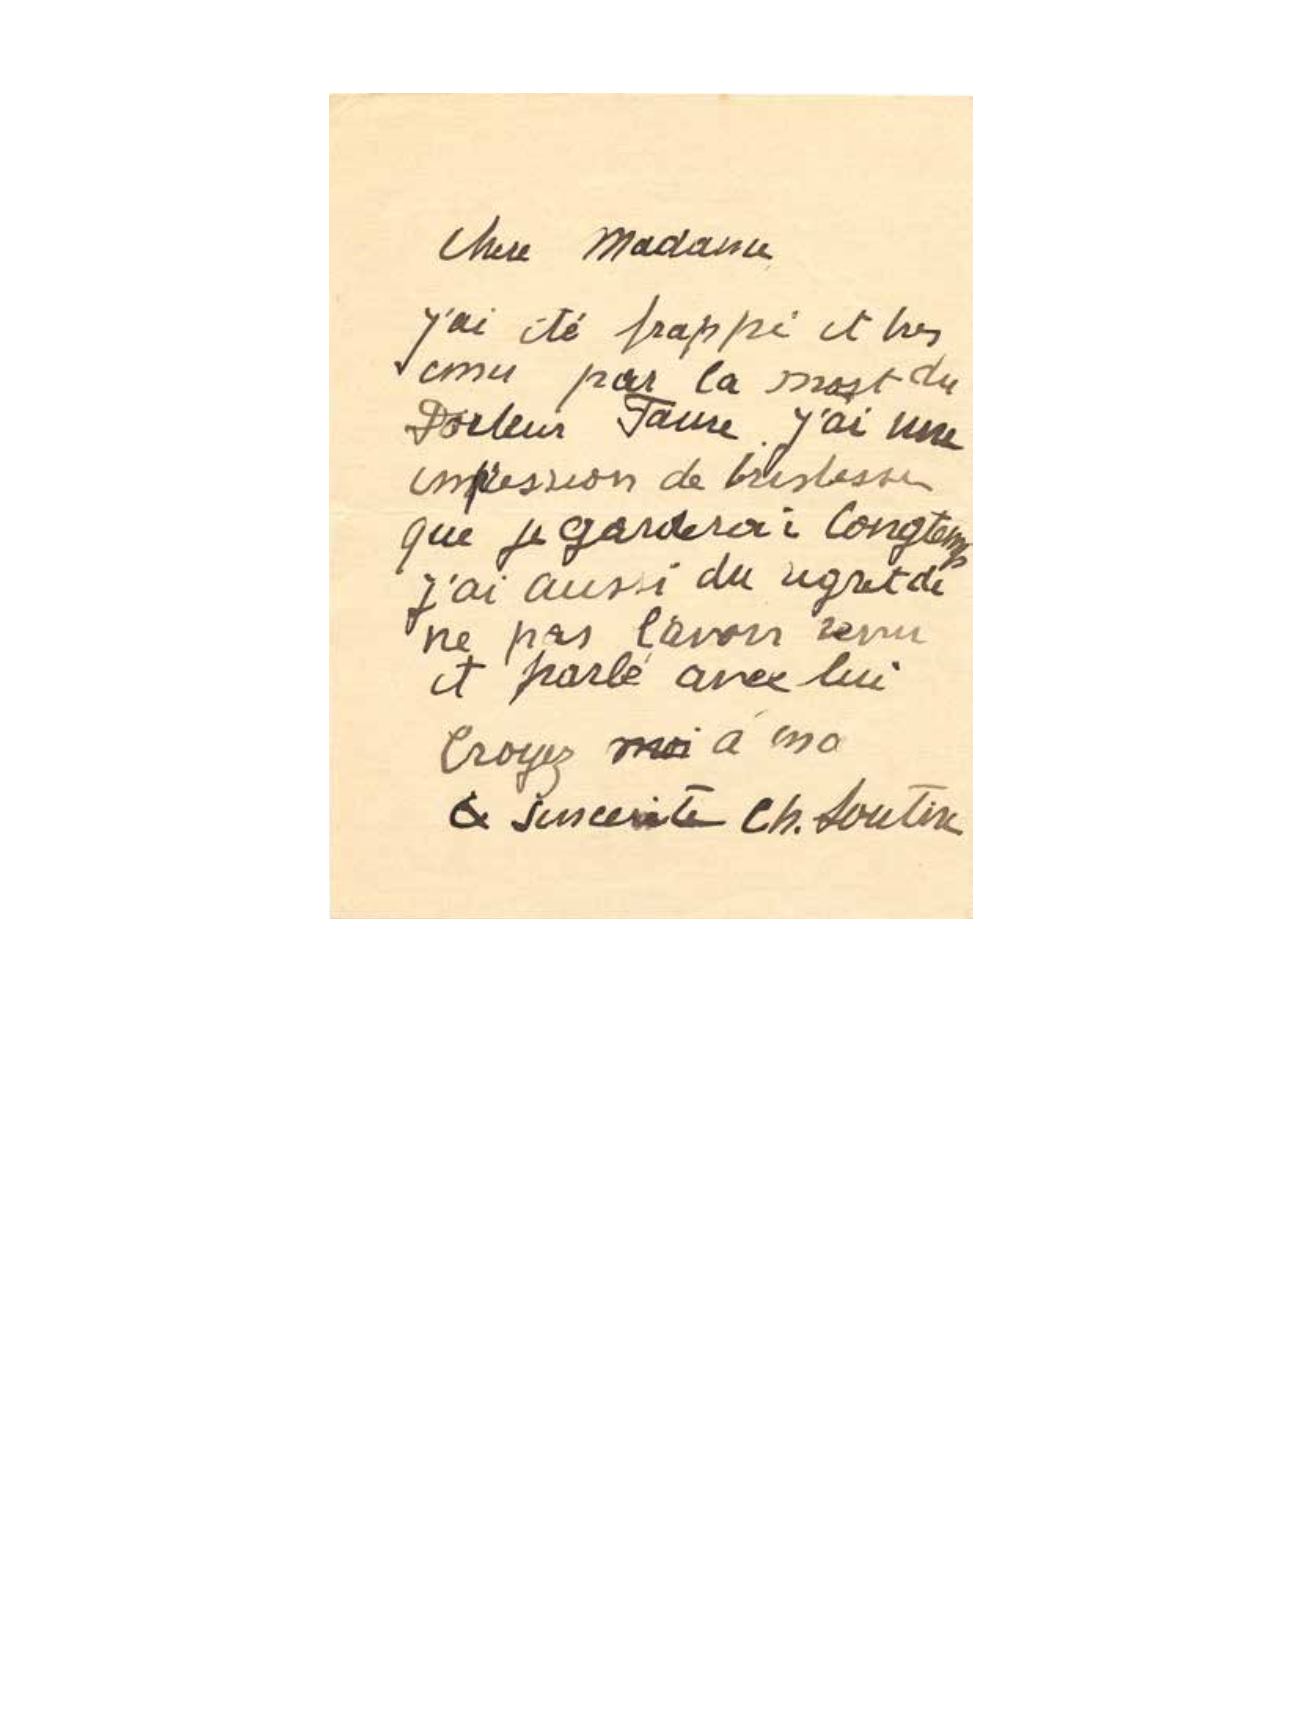 Chere Madame
j'ai été frappé et tres
emu par la mort du
Docteur Faure. j'ai une
impression de tristesse
que je garderai longtemps
j'ai aussi du regret de
ne pas l'avoir revu
et parlé avec lui
Croyez moi à ma
sincerité Ch. Soutine